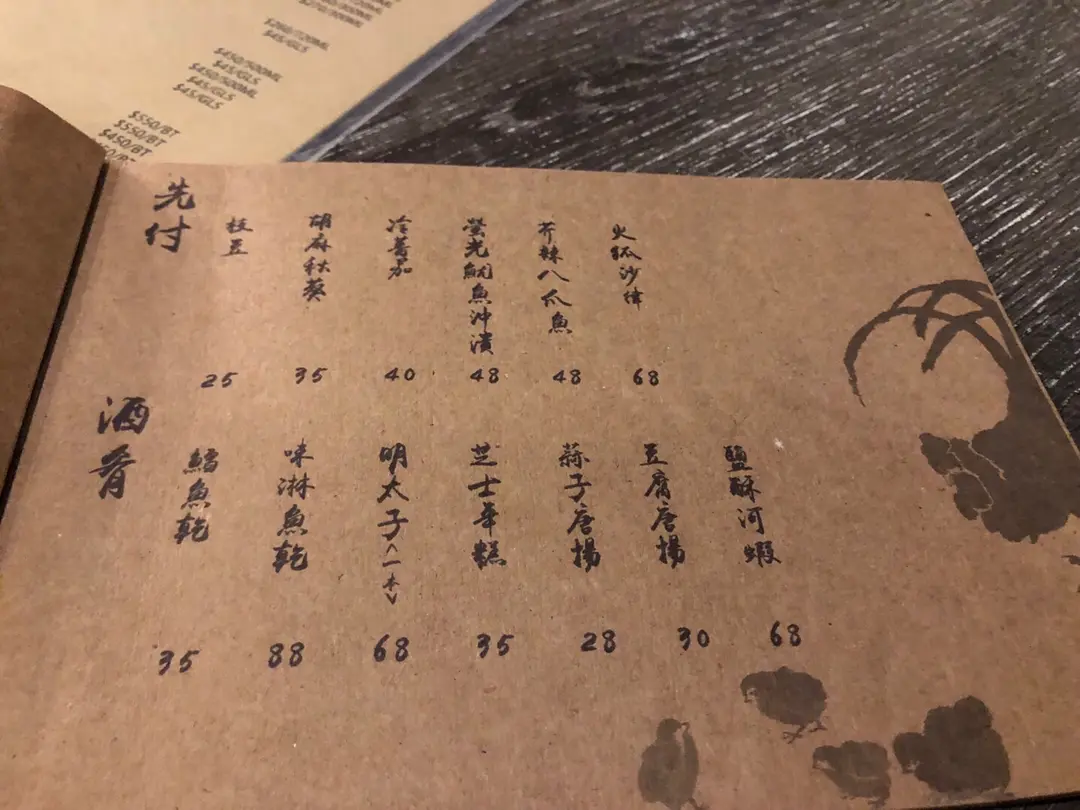 $45/GLS
$450/500ML
$45/GLS
$450/500ML
$45/GLS
$550/BT
$550/BT
$450/BT
先付
枝豆
25
胡麻秋葵
35
冷蕃茄
40
螢光魷魚沖漬
48
芥辣八爪魚
48
火狐沙律
68
酒肴
鱈魚乾
35
味淋魚乾
88
明太子<一本>
68
芝士年糕
35
蒜子唐揚
28
豆腐唐揚
30
鹽酥河蝦
68